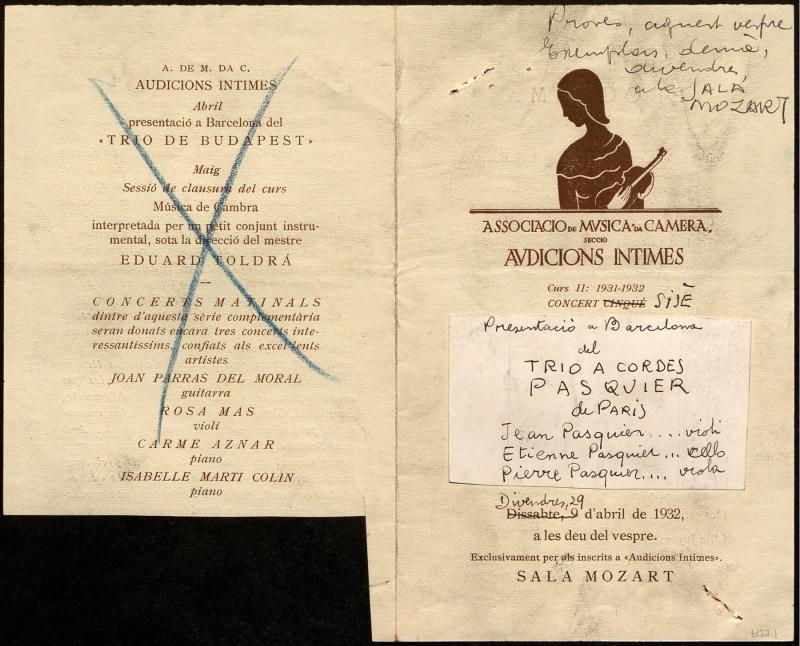 A. DE M. DA C.
AUDICIONS INTIMES
Abril
presentació a Barcelona del
«TRIO DE BUDAPEST»
Maig
Sessió de clausura del curs
Música de Cambra
interpretada per un petit conjunt instru-
mental, sota la direcció del mestre
EDUARD TOLDRÁ
CONCERTS MATINALS
dintre d'aquesta sèrie complementària
seran donats encara tres concerts inte-
ressantíssims, confiats als excel·lents
artistes
JOAN PARRAS DEL MORAL
guitarra
ROSA MAS
violi
CARME AZNAR
piano
ISABELLE MARTI COLIN
piano
Proves, aquest vespre
Exemplars, demà,
divendres,
a la SALA
MOZART
ASSOCIACIO DE MVSICA DA CAMERA.
SECCIO
AVDICIONS INTIMES
Curs II: 1931-1932
CONCERT CINQUÉ SISÈ
Presentació a Barcelona
del
TRIO A CORDES
PASQUIER
de PARIS
Jean Pasquier.... violi
Etienne Pasquier... cello
Pierre Pasquier.... viola
Divendres, 29
Dissabte, 9 d'abril de 1932,
a les deu del vespre.
Exclusivament per als inscrits a «Audicions Intimes».
SALA MOZART